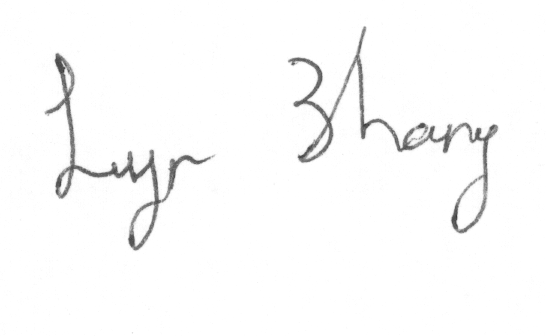 Luyn Zhang